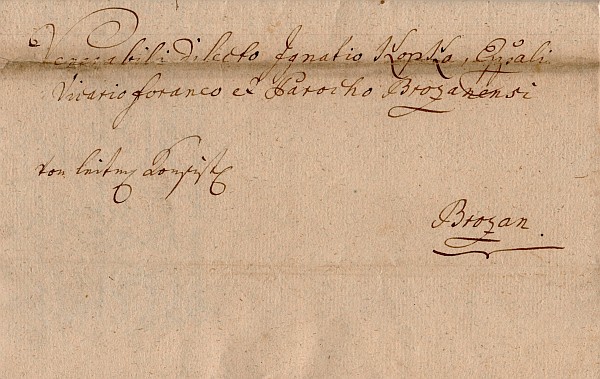 Venerabili dilecto Ignatio Kopko,
Vicario foraneo et Parocho Brozanensi
von leitm Consist
Brozan.